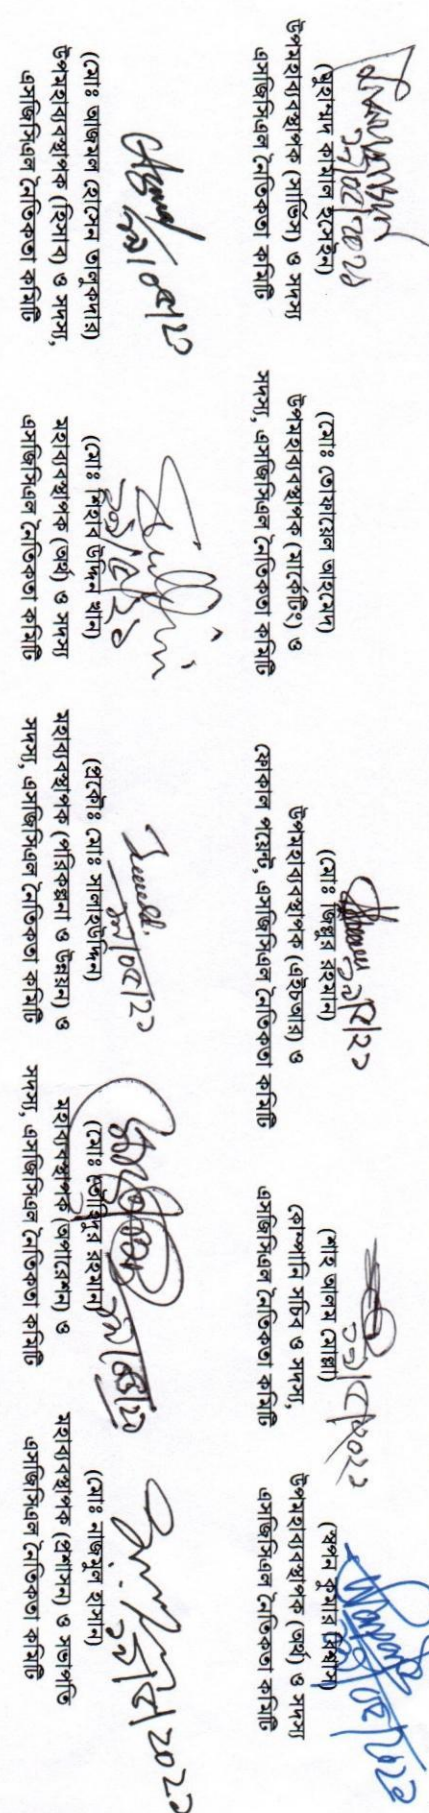 (মুহাম্মদ কামাল হুসেইন)
উপমহাব্যবস্থাপক (সার্ভিস) ও সদস্য
এসজিসিএল নৈতিকতা কমিটি
(মোঃ তোফায়েল আহমেদ)
উপমহাব্যবস্থাপক (মার্কেটিং) ও
সদস্য, এসজিসিএল নৈতিকতা কমিটি
(মোঃ জিল্লুর রহমান)
উপমহাব্যবস্থাপক (এইচআর) ও
ফোকাল পয়েন্ট, এসজিসিএল নৈতিকতা কমিটি
(শাহ আলম মোল্লা)
কোম্পানি সচিব ও সদস্য,
এসজিসিএল নৈতিকতা কমিটি
(স্বপন কুমার বিশ্বাস)
উপমহাব্যবস্থাপক (অর্থ) ও সদস্য
এসজিসিএল নৈতিকতা কমিটি
(মোঃ আজমল হোসেন তালুকদার)
উপমহাব্যবস্থাপক (হিসাব) ও সদস্য,
এসজিসিএল নৈতিকতা কমিটি
(মোঃ শিহাব উদ্দিন খান)
মহাব্যবস্থাপক (অর্থ) ও সদস্য
এসজিসিএল নৈতিকতা কমিটি
(প্রকৌঃ মোঃ সালাহউদ্দিন)
মহাব্যবস্থাপক (পরিকল্পনা ও উন্নয়ন) ও
সদস্য, এসজিসিএল নৈতিকতা কমিটি
(মোঃ তৌহিদুর রহমান)
মহাব্যবস্থাপক (অপারেশন) ও
সদস্য, এসজিসিএল নৈতিকতা কমিটি
(মোঃ নাজমুল হাসান)
মহাব্যবস্থাপক (প্রশাসন) ও সভাপতি
এসজিসিএল নৈতিকতা কমিটি